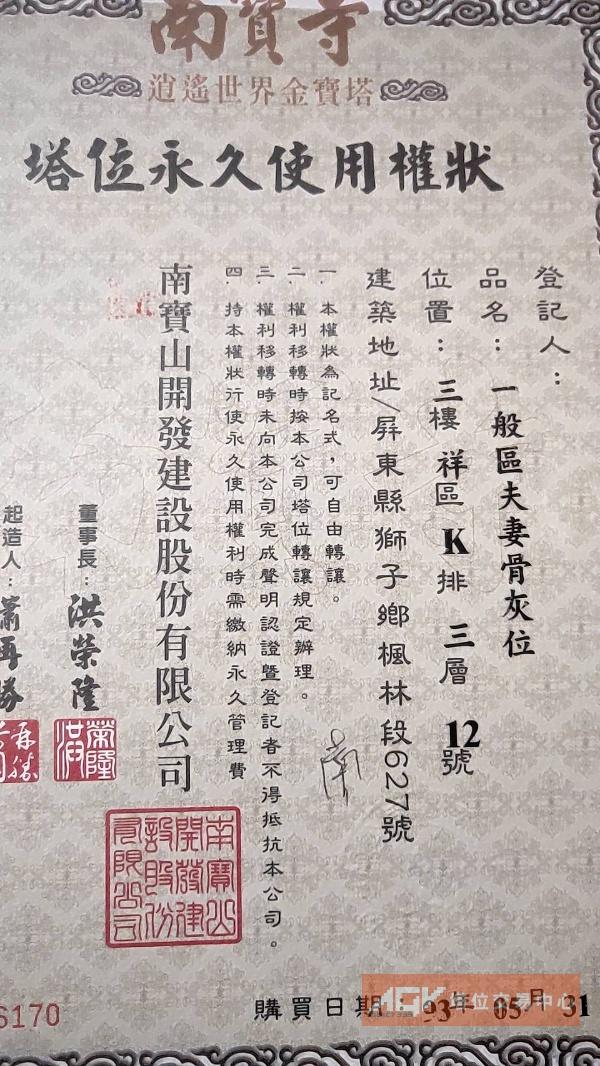 南寶寺
逍遙世界金寶塔
塔位永久使用權狀
登記人：
品名：一般區夫妻骨灰位
位置：三樓祥區K排三層12號
建築地址/屏東縣獅子鄉楓林段627號
一、本權狀為記名式，可自由轉讓。
二、權利移轉時按本公司塔位轉讓規定辦理。
三、權利移轉時未向本公司完成聲明認證暨登記者不得抵抗本公司。
四、持本權狀行使永久使用權利時需繳納永久管理費
南
南寶山開發建設股份有限公司
南寶山開發建設股份有限公司
董事長：洪榮隆
榮隆洪
起造人：蕭再勝
購買日期：93年05月31
6170
塔位交易中心